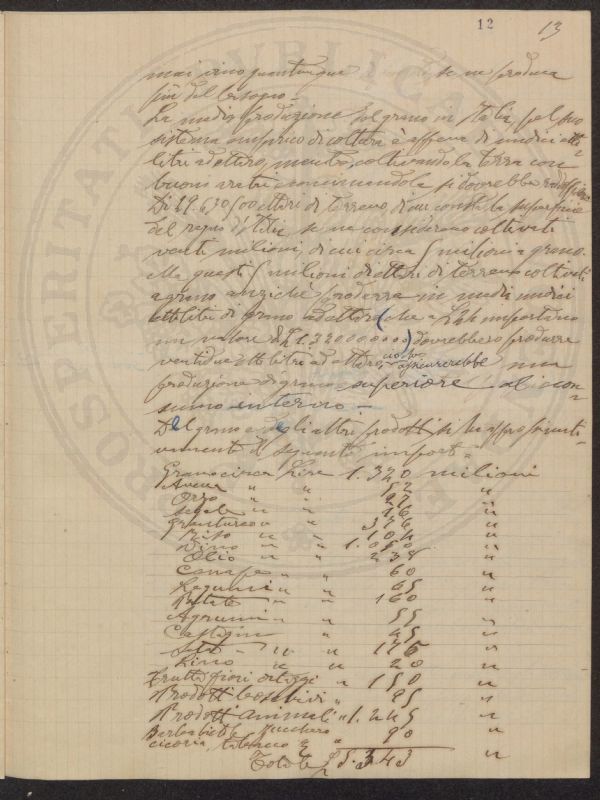 12
13
mai vino quantunque se ne produca
più del bisogno.
La media produzione del grano in Italia, pel suo
sistema empirico di coltura è appena di undici etto
litri ad ettaro, mentre, coltivando la terra con
buoni aratri e concimandola si dovrebbe
Di 29.630/00 ettari di terreno, di cui consta la superficie
del regno d'Italia se ne considerano coltivati
venti milioni, di cui circa 5 milioni a grano.
Ma questi 5 milioni di ettari di terreno coltivati
a grano anzichè produrre in media undici
ettolitri di grano ad ettaro (che a L 24 importano
un valore di L 1.320000000) dovrebbero produrre
ventidue ettolitri ad ettaro, assicurerebbe una
produzione di grano superiore al con=
sumo interno.=
Del grano e degli altri prodotti si ha approssimati=
vamente il seguente importo=
Grano circa Lire 1.320 milioni
Avena " " 52 "
Orzo " " 27 "
Segale " " 16 "
Granturco " " 326 "
Riso " " 104 "
Vino " " 1.050 "
Olio " " 238 "
Canape " " 60 "
Legumi " " 65 "
Patate " " 160 "
Agrumi " " 55 "
Castagne " 45 "
Seta " " 176 "
Lino " " 20 "
Frutta fiori ortaggi " 150 "
Prodotti boschivi " 95 "
Prodotti animali " 1.245 "
Barbabietole zucchero
cicoria, tabacco 90 "
Totale L 5.343 "